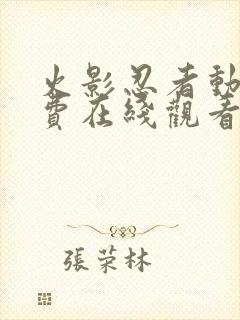 火影忍者動
費在綫觀看
張荣林